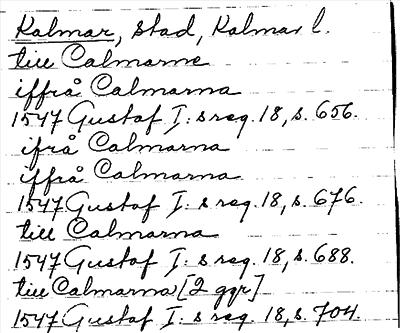 Kalmar, stad, Kalmar l.
till Calmarne
iffrå Calmarna
1547 Gustaf I:s reg. 18, s. 656.
ifrå Calmarna
iffrå Calmarna
1547 Gustaf I:s reg. 18, s. 676.
till Calmarna
1547 Gustaf I:s reg. 18, s. 688.
till Calmarna [2 ggr]
1547 Gustaf I:s reg. 18, s. 704.